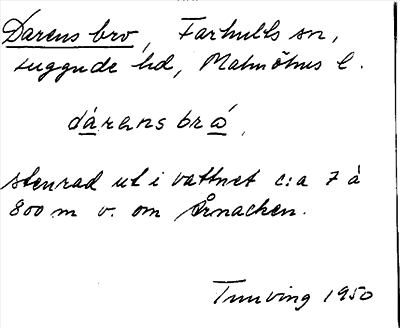 Darens bro, Farhults sn,
Luggude hd, Malmöhus l.
dárens bró,
stenrad ut i vattnet c:a 7 à
800 m v. om Årnacken.
Tunving 1950